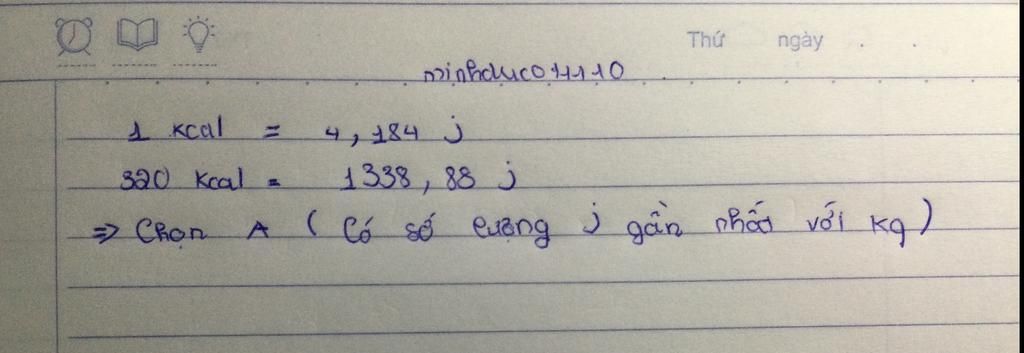 Thứ ngày . .
minhduc011110
1 kcal = 4,184 j
320 kcal = 1338,88 j
=> Chọn A ( Có số lượng j gần nhất với kq )